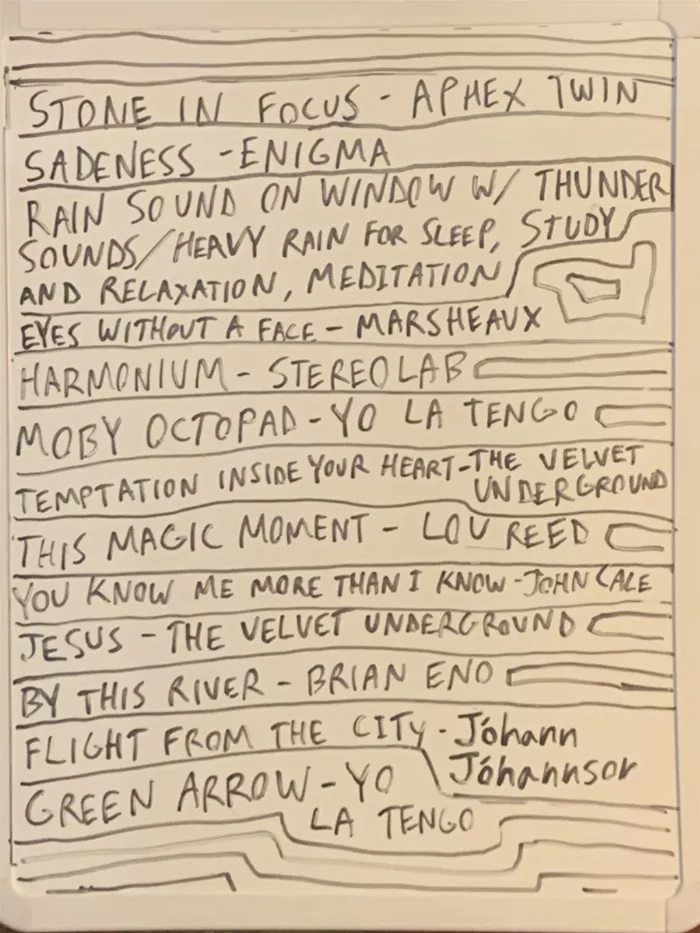 STONE IN FOCUS - APHEX TWIN
SADENESS - ENIGMA
RAIN SOUND ON WINDOW W/ THUNDER
SOUNDS/HEAVY RAIN FOR SLEEP, STUDY
AND RELAXATION, MEDITATION
EYES WITHOUT A FACE - MARSHEAUX
HARMONIUM - STEREOLAB
MOBY OCTOPAD - YO LA TENGO
TEMPTATION INSIDE YOUR HEART - THE VELVET
UNDERGROUND
THIS MAGIC MOMENT - LOU REED
YOU KNOW ME MORE THAN I KNOW - JOHN CALE
JESUS - THE VELVET UNDERGROUND
BY THIS RIVER - BRIAN ENO
FLIGHT FROM THE CITY - Jóhann
Jóhannsor
GREEN ARROW - YO
LA TENGO